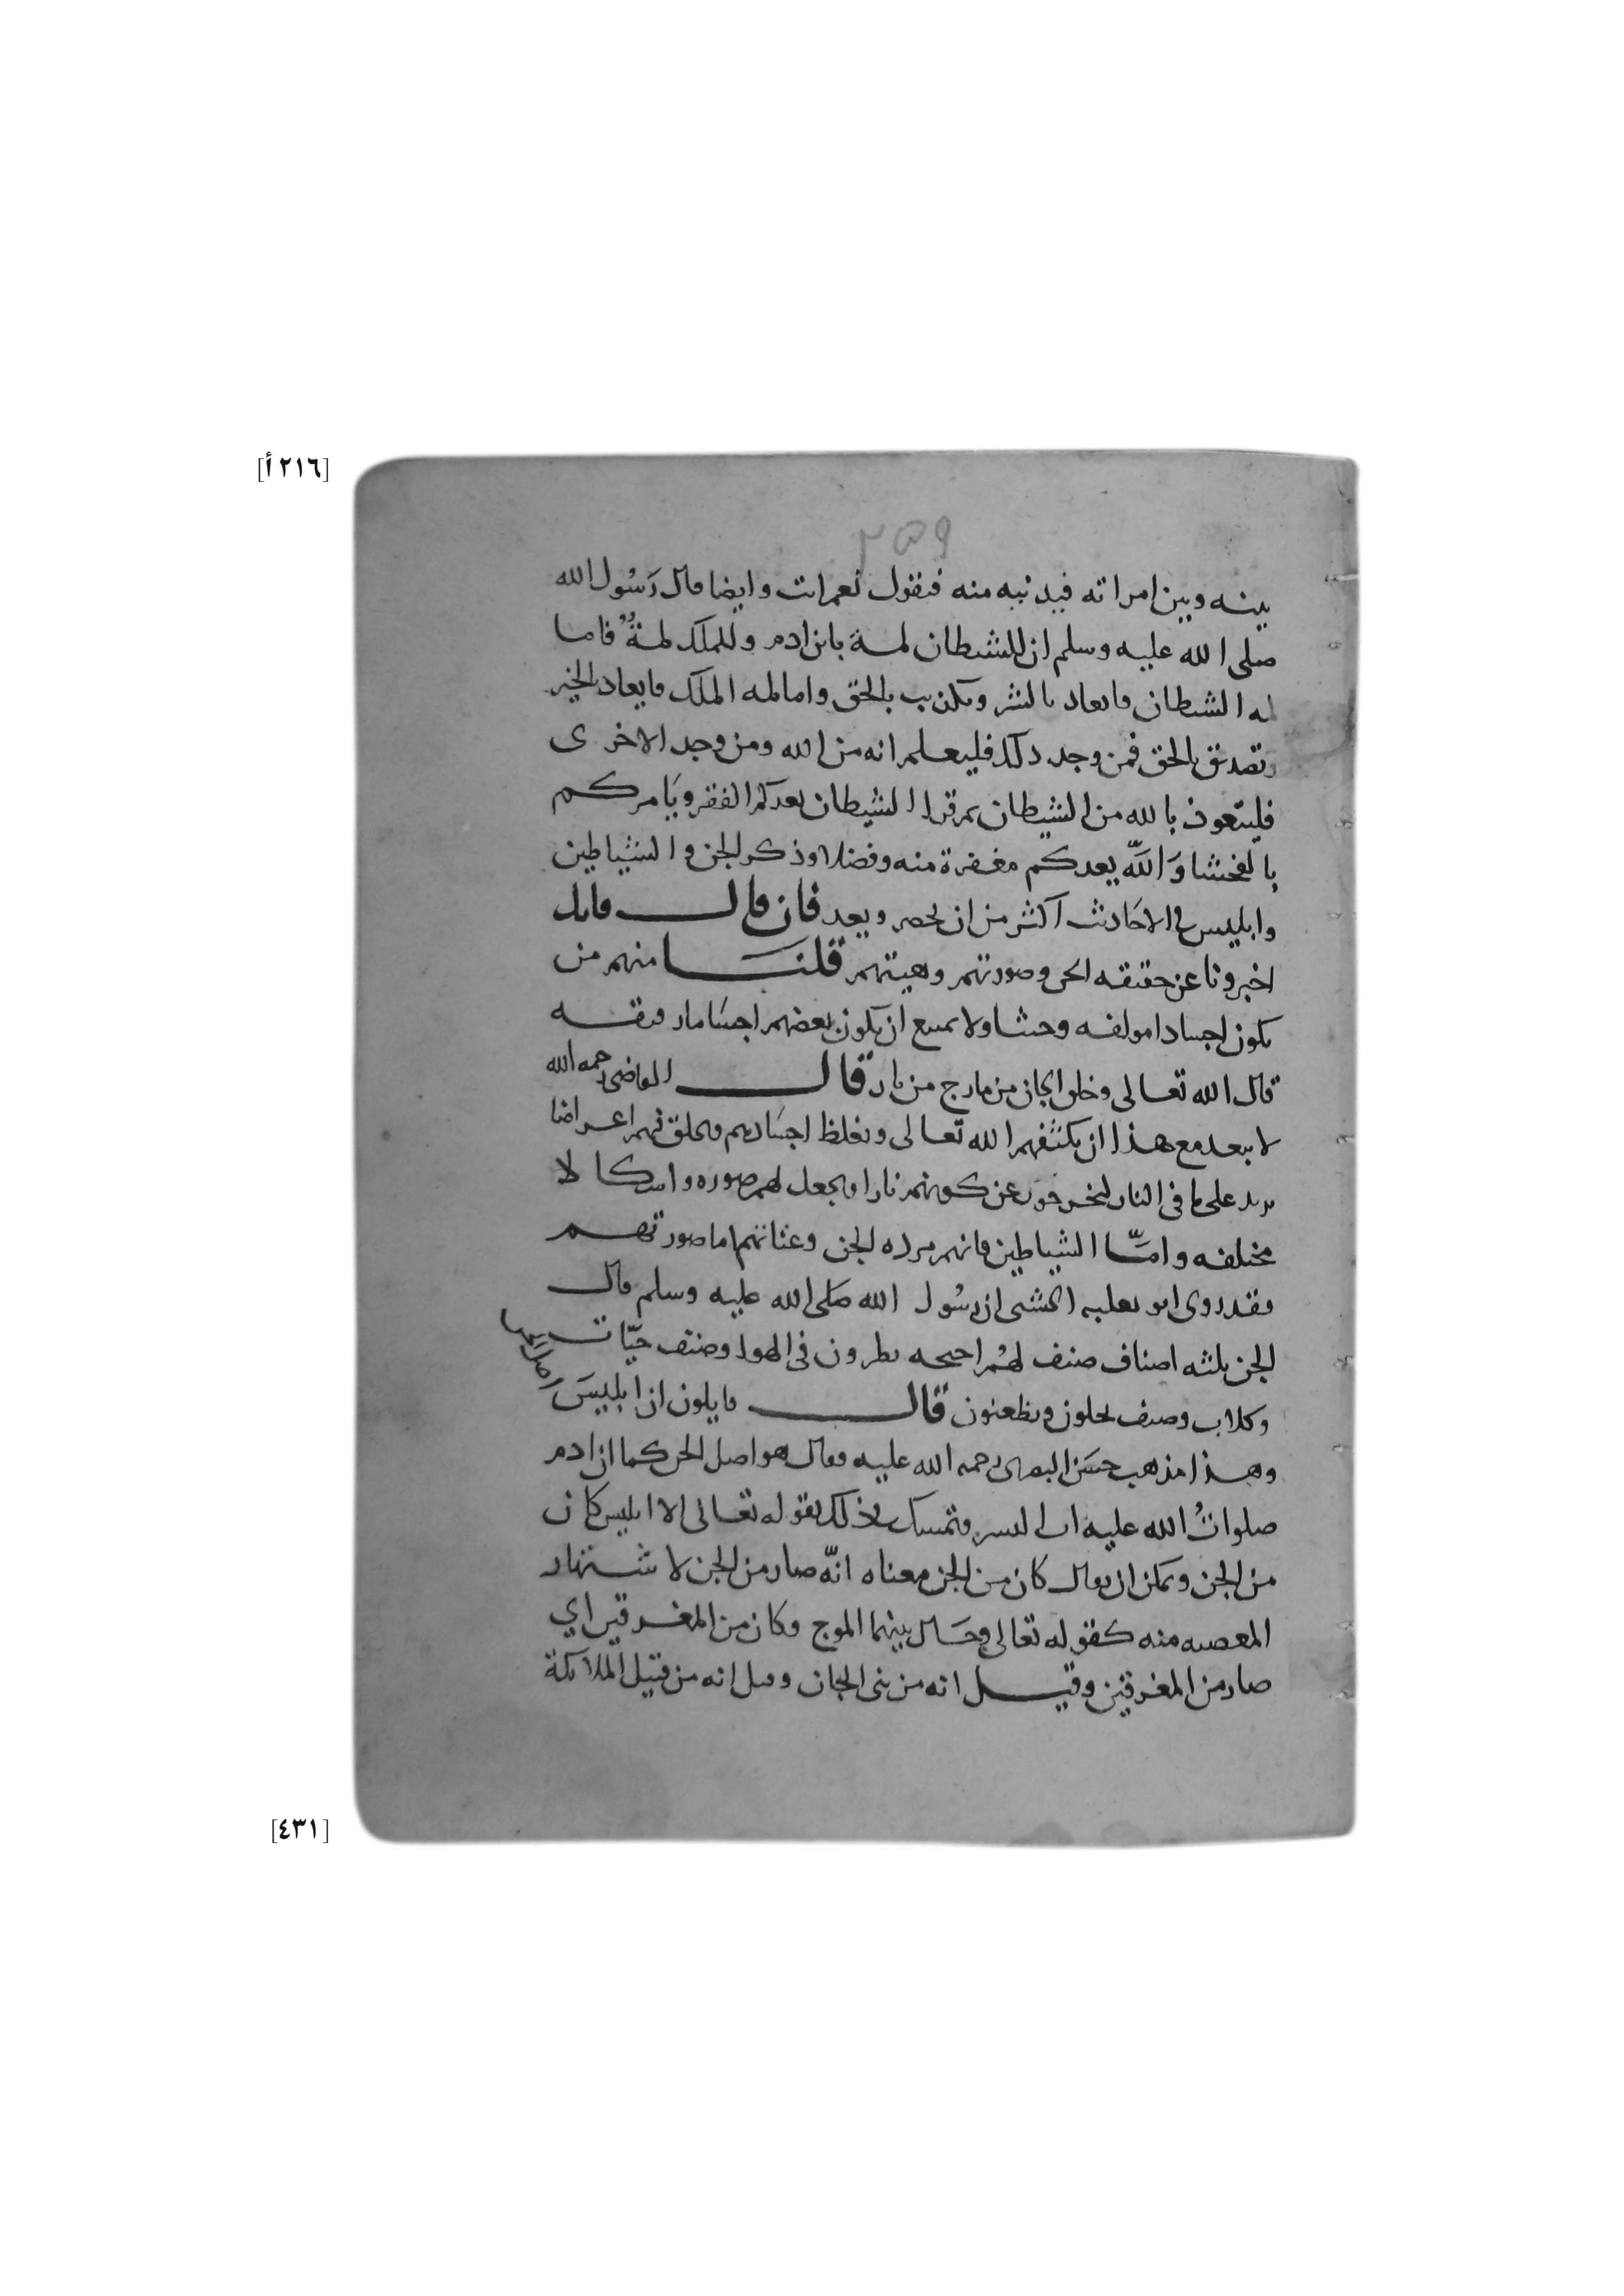 [٢١٦ أ]
٢٥٩
بينه وبين امراته فيدنيه منه فيقول نعم انت وايضا قال رسُول الله
صلى الله عليه وسلم ان للشيطان لمة بابن ادم وللملك لمةٌ فاما
لمه الشيطان فايعاد بالشر وتكذيب بالحق واما لمه الملك فايعاد بالخير
وتصديق بالحق فمن وجد ذلك فليعلم انه من الله ومن وجد الاخرى
فليتعوذ بالله من الشيطان ثم قرا الشيطان يعدكم الفقر ويَامركم
بالفحشا وَاللّه يعدكم مغفرة منه وفضلا وذكر الجن والشياطين
وابليس في الاحَاديث اكثر من ان يحصر ويعد فان قال قايل
اخبرونا عن حقيقه الجن وصورتهم وهيتهم قلنَا منهم من
يكون اجسادا مولفه وحشا ولا يمنع ان يكون بعضهم اجسَاما رقيقه
قال الله تعالى وخلق الجان من مارج من نار قال القاضي رحمه الله
لا يبعد مع هذا ان يكثفهم الله تعالى ويغلظ اجسَادهم ويخلق فيهم اعراضا
يزيد على ما في النار ليخرجون عن كونهم نارا ويجعل لهم صوره واشكالا
مختلفه وامّا الشياطين فانهم مرده الجن وعتاتهم اما صورتهم
فقد روى ابو ثعلبه الخشني ان رسُول الله صَلى الله عليه وسلم قال
الجن ثلثه اصناف صنف لهُم اجنحه يطيرون في الهوا وصنف حيّات
وكلاب وصنف يحلون ويظعنون قال قايلون ان ابليسَ اصل الجن
وهذا مذهب حسَن البصري رحمه الله عليه فقال هو اصل الجن كما ان ادم
صلواتُ الله عليه اصل الانس وتمسك بذلك بقوله تعالى الا ابليس كان
من الجن ويمكن ان يقال كان من الجن معناه انّه صار من الجن لاشتهار
المعصيه منه كقوله تعالى وحَال بينهما الموج وكان من المغرقين اي
صار من المغرقين وقيل انه من بني الجان وقيل انه من قبيل الملائكة
[٤٣١]